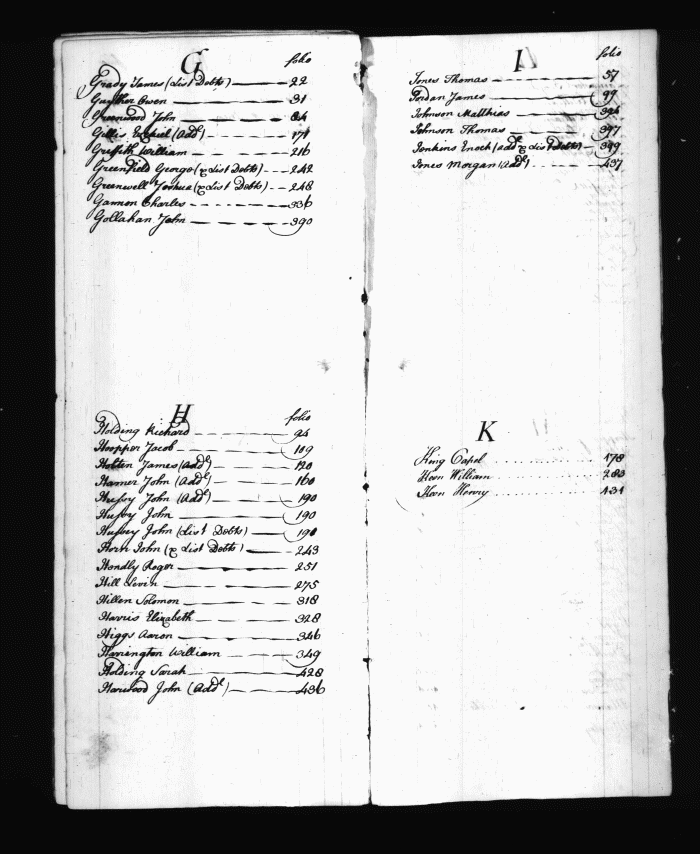 G folio
Grady James (List Debts) 22
Gayther Owen 31
Greenwood John 84
Gillis Ezekiel (Add.l) 171
Griffith William 216
Greenfield George (& List Debts) 242
Greenwell Joshua (& List Debts) 248
Gannon Charles 336
Gollahan John 390
H folio
Holding Richard 94
Hopper Jacob 119
Holten James (Add.l) 120
Hamer John (Add.l) 160
Hussey John (Add.l) 190
Hussey John 190
Hussey John (List Debts) 190
Horn John (& List Debts) 243
Hendly Roger 251
Hill Levin 275
Hillen Solomon 318
Harris Elizabeth 328
Higgs Aaron 346
Harrington William 349
Holding Sarah 428
Harwood John (Add.l) 436
I folio
Jones Thomas 57
Jordan James 99
Johnson Matthias 394
Johnson Thomas 397
Jenkins Enoch (Add.l & List Debts) 399
Jones Morgan (Add.l) 437
K
King Capel 178
Keen William 283
Keen Henry 431